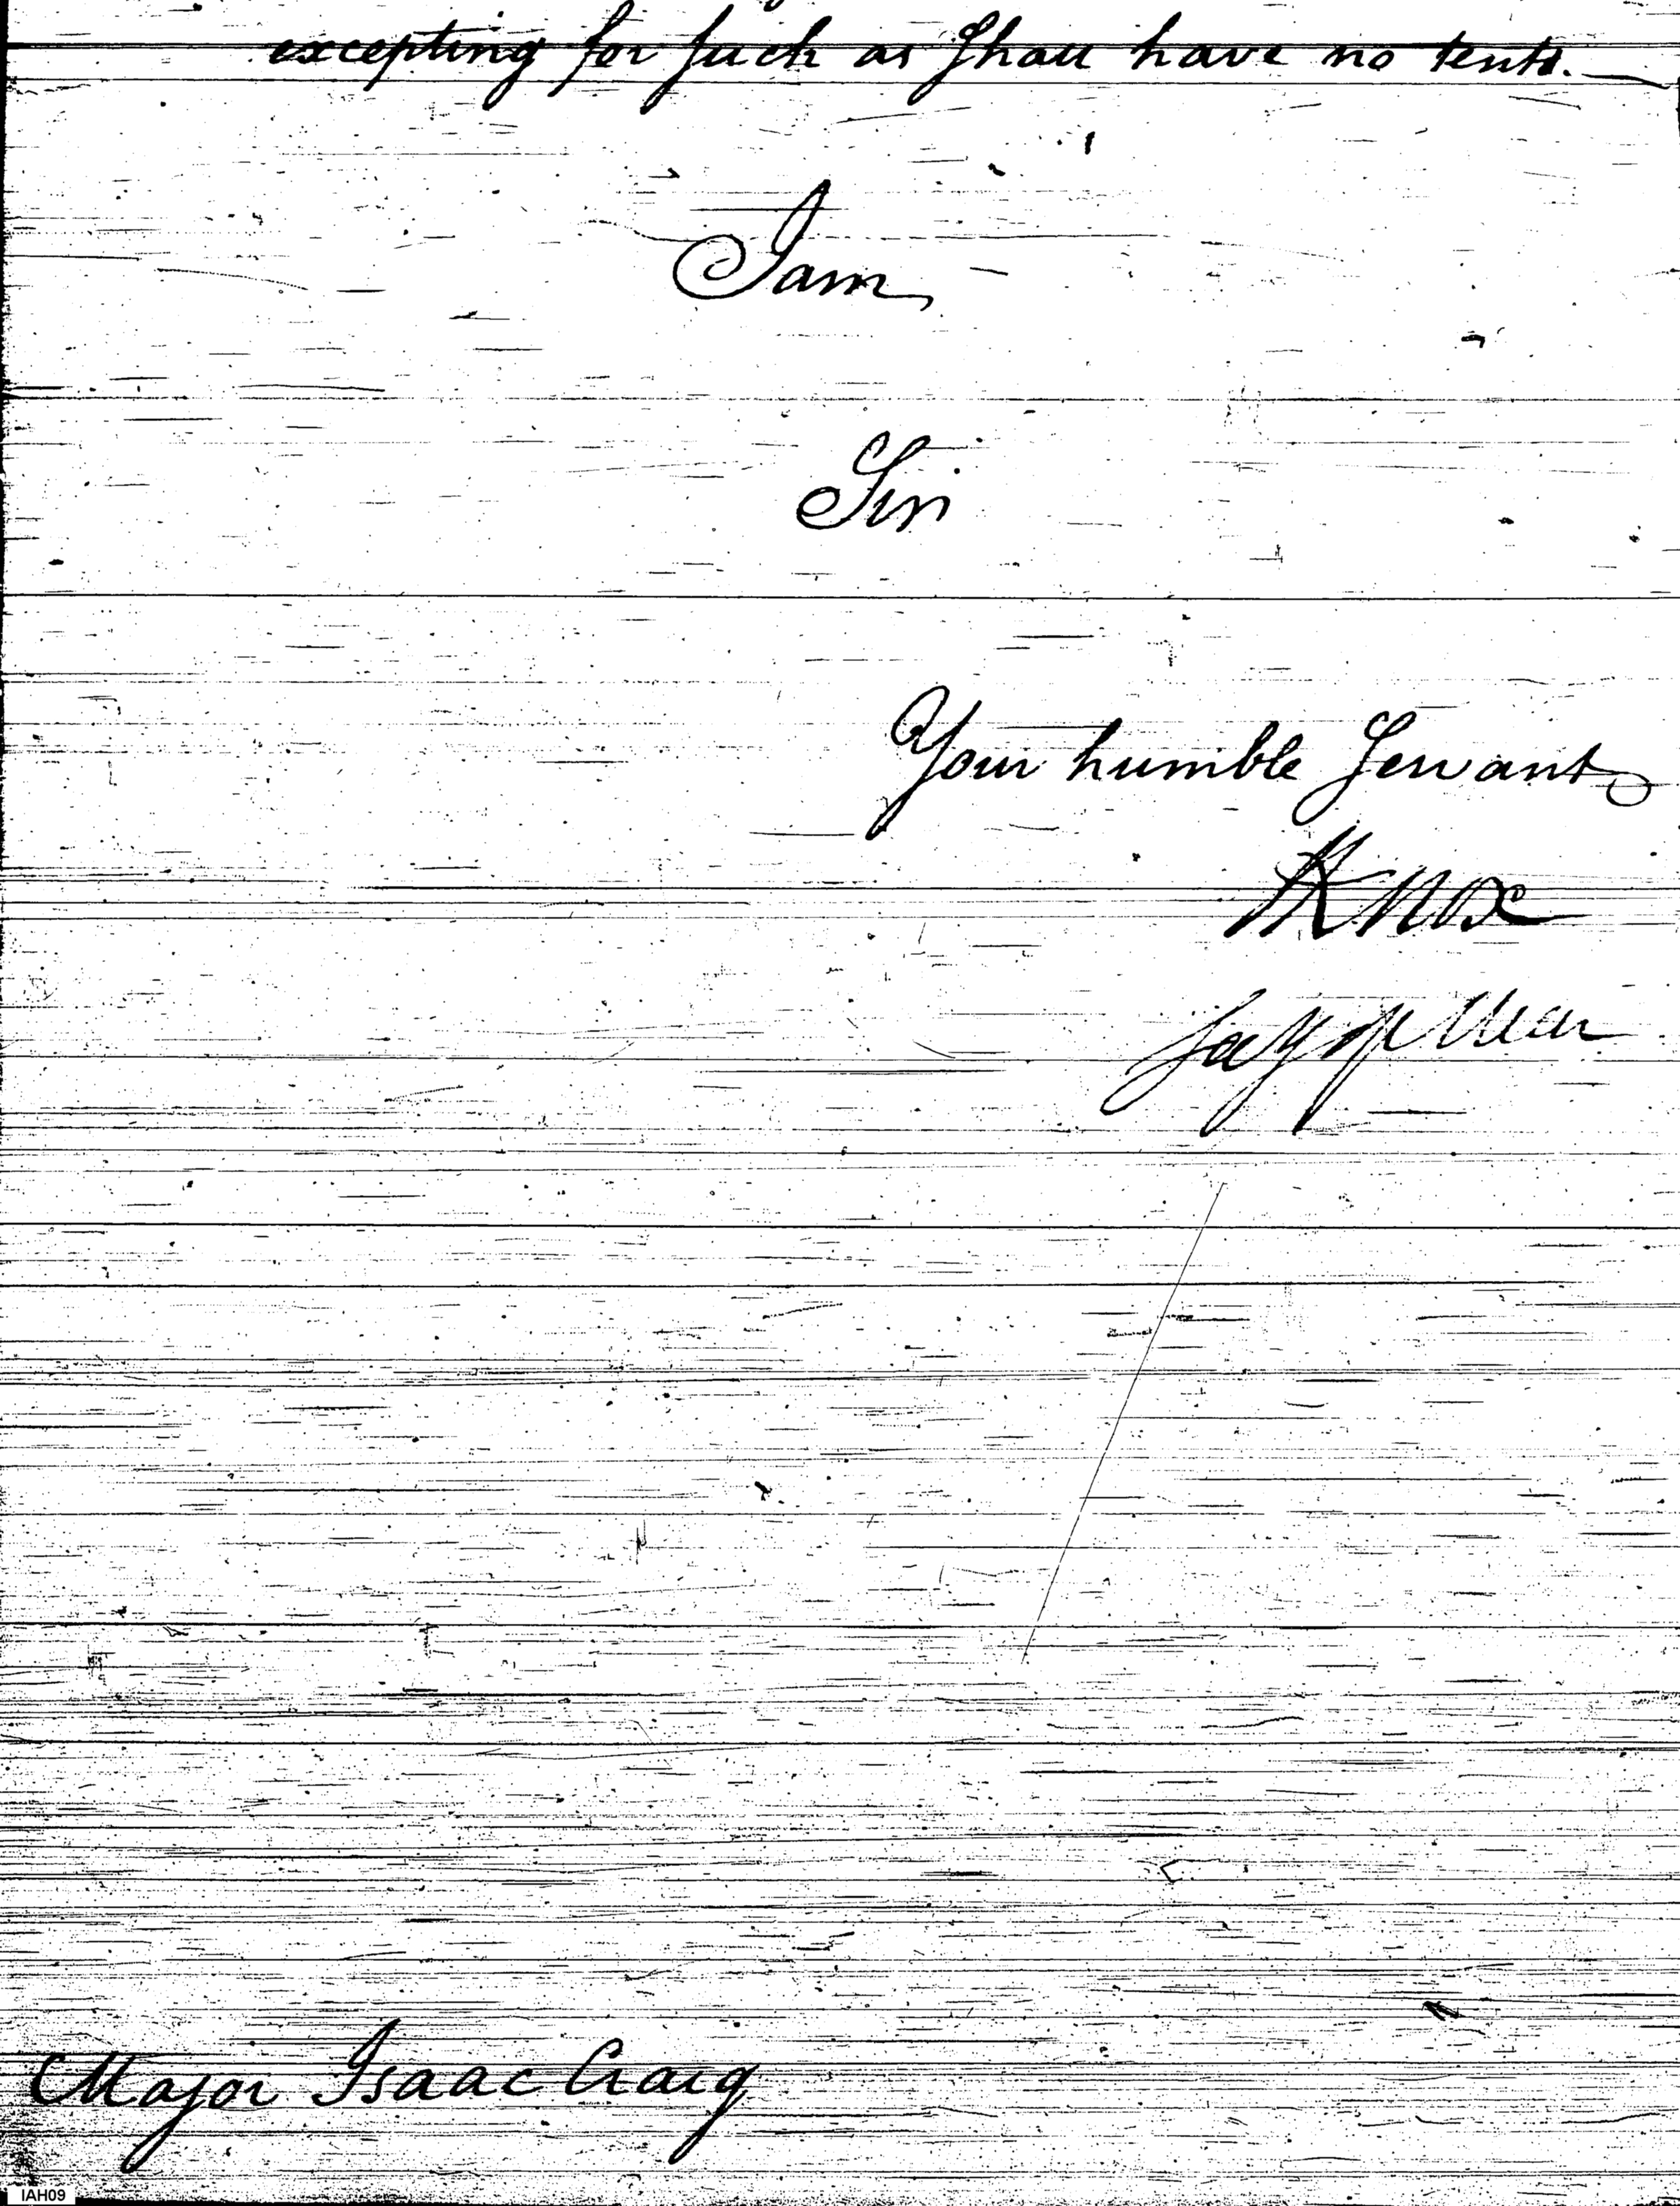 excepting for such as shall have no tents.
I am
Sir
Your humble Servant
HKnox
Secy of War
Major Isaac Craig
IAH09